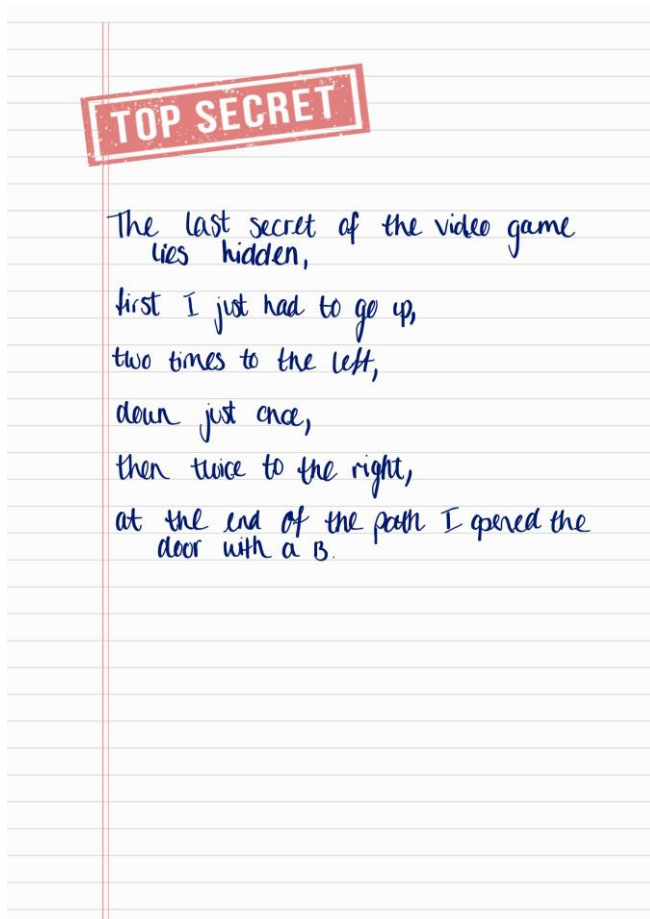 TOP SECRET
The last secret of the video game
lies hidden,
first I just had to go up,
two times to the left,
down just once,
then twice to the right,
at the end of the path I opened the
door with a B.